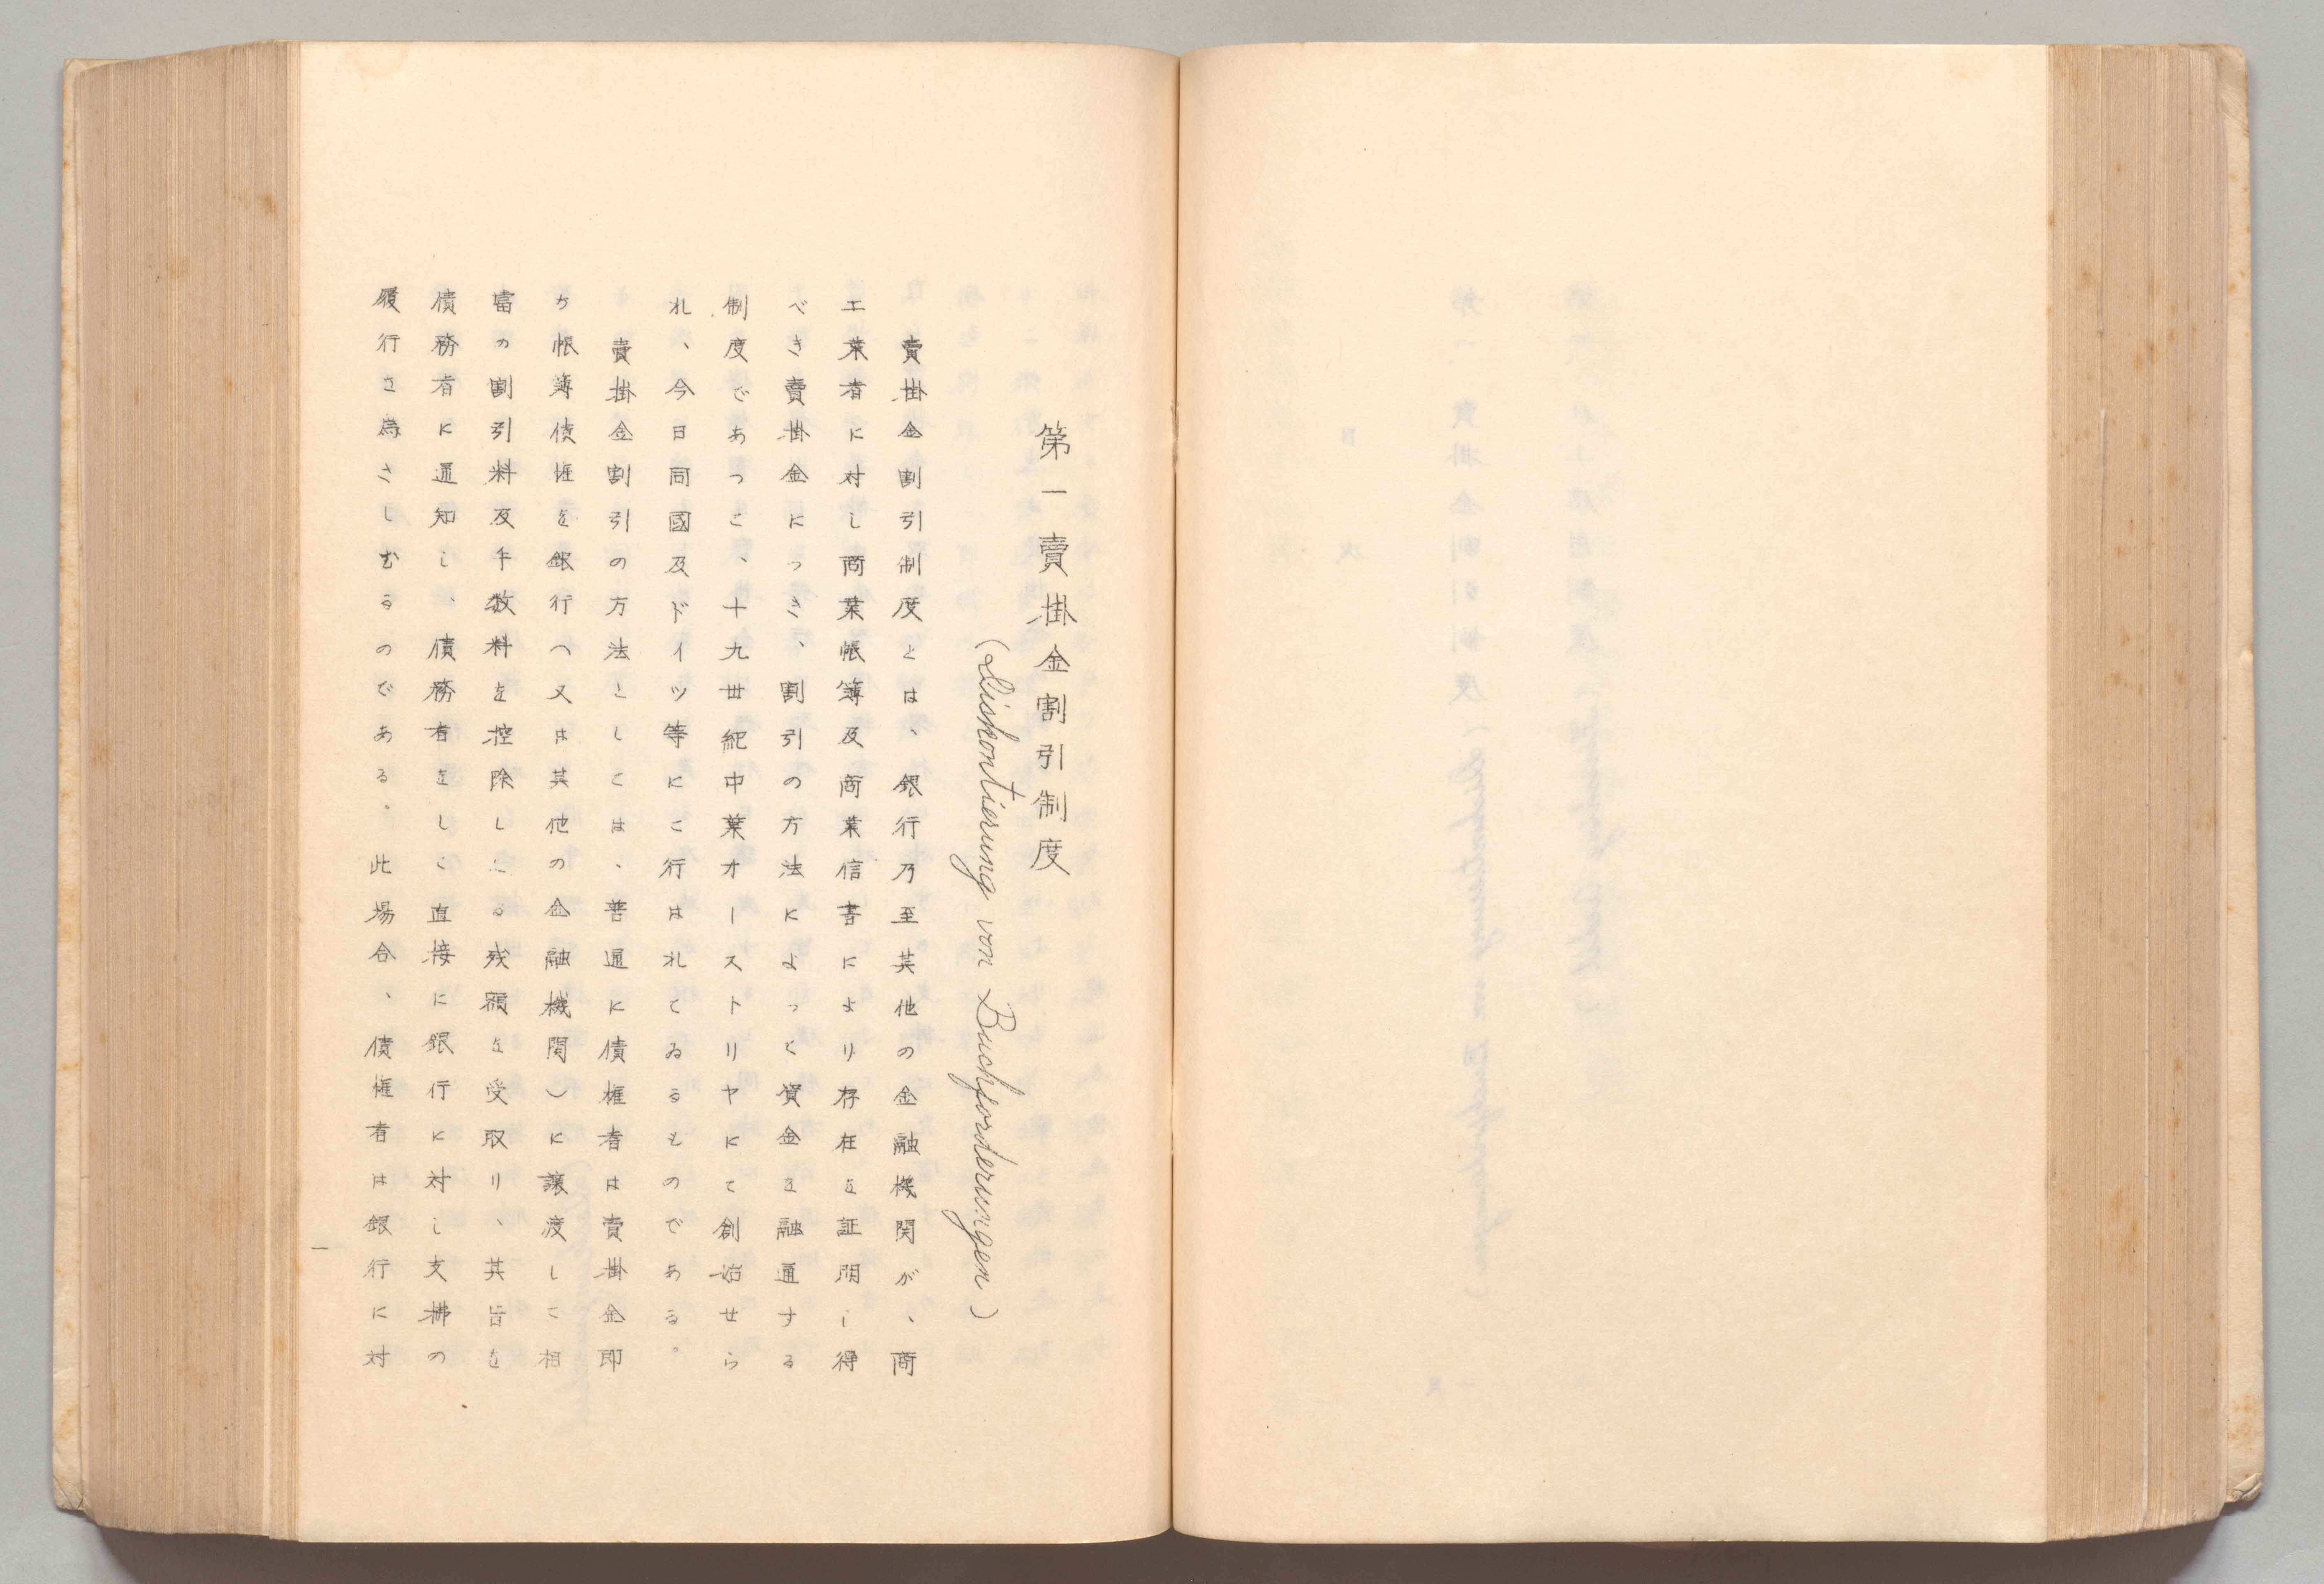 第一 賣掛金割引制度
(Diskontierung von Buchforderungen)
賣掛金割引制度とは、銀行乃至其他の金融機関が、商
工業者に対し商業帳簿及商業信書により存在を証明し得
べき賣掛金につき、割引の方法によって資金を融通する
制度であって、十九世紀中葉オーストリヤにて創始せら
れ、今日同國及ドイツ等にて行はれてゐるものである。
賣掛金割引の方法としては、普通に債権者は賣掛金即
ち帳簿債権を銀行(又は其他の金融機関)に譲渡して相
當の割引料及手数料を控除したる残額を受取り、其旨を
債務者に通知し、債務者をして直接に銀行に対し支拂の
履行を為さしむるのである。此場合、債権者は銀行に対
一